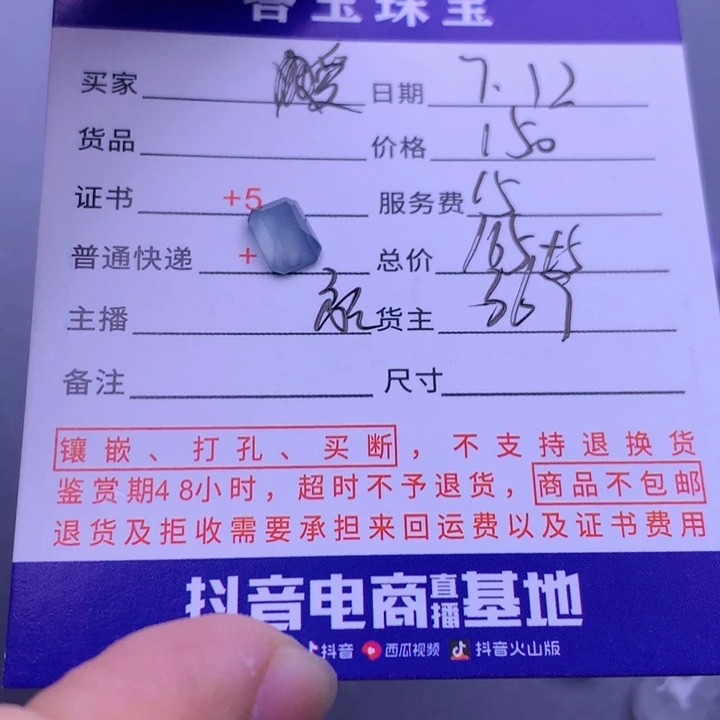 玉珠宝
买家 日期 7.12
货品 价格 150
证书 +5 服务费 15
普通快递 + 总价 165+5
主播 货主 369
备注 尺寸
镶嵌、打孔、买断，不支持退换货
鉴赏期48小时，超时不予退货，商品不包邮
退货及拒收需要承担来回运费以及证书费用
抖音电商直播基地
抖音 西瓜视频 抖音火山版